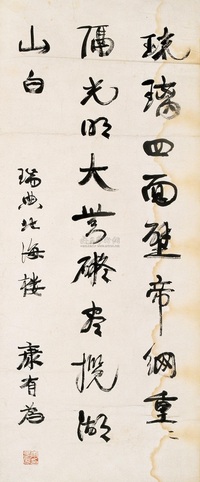 琉璃四面壁帝網重〻
隔光明大無礙盡攬湖
山白
瑞典北海樓 康有為